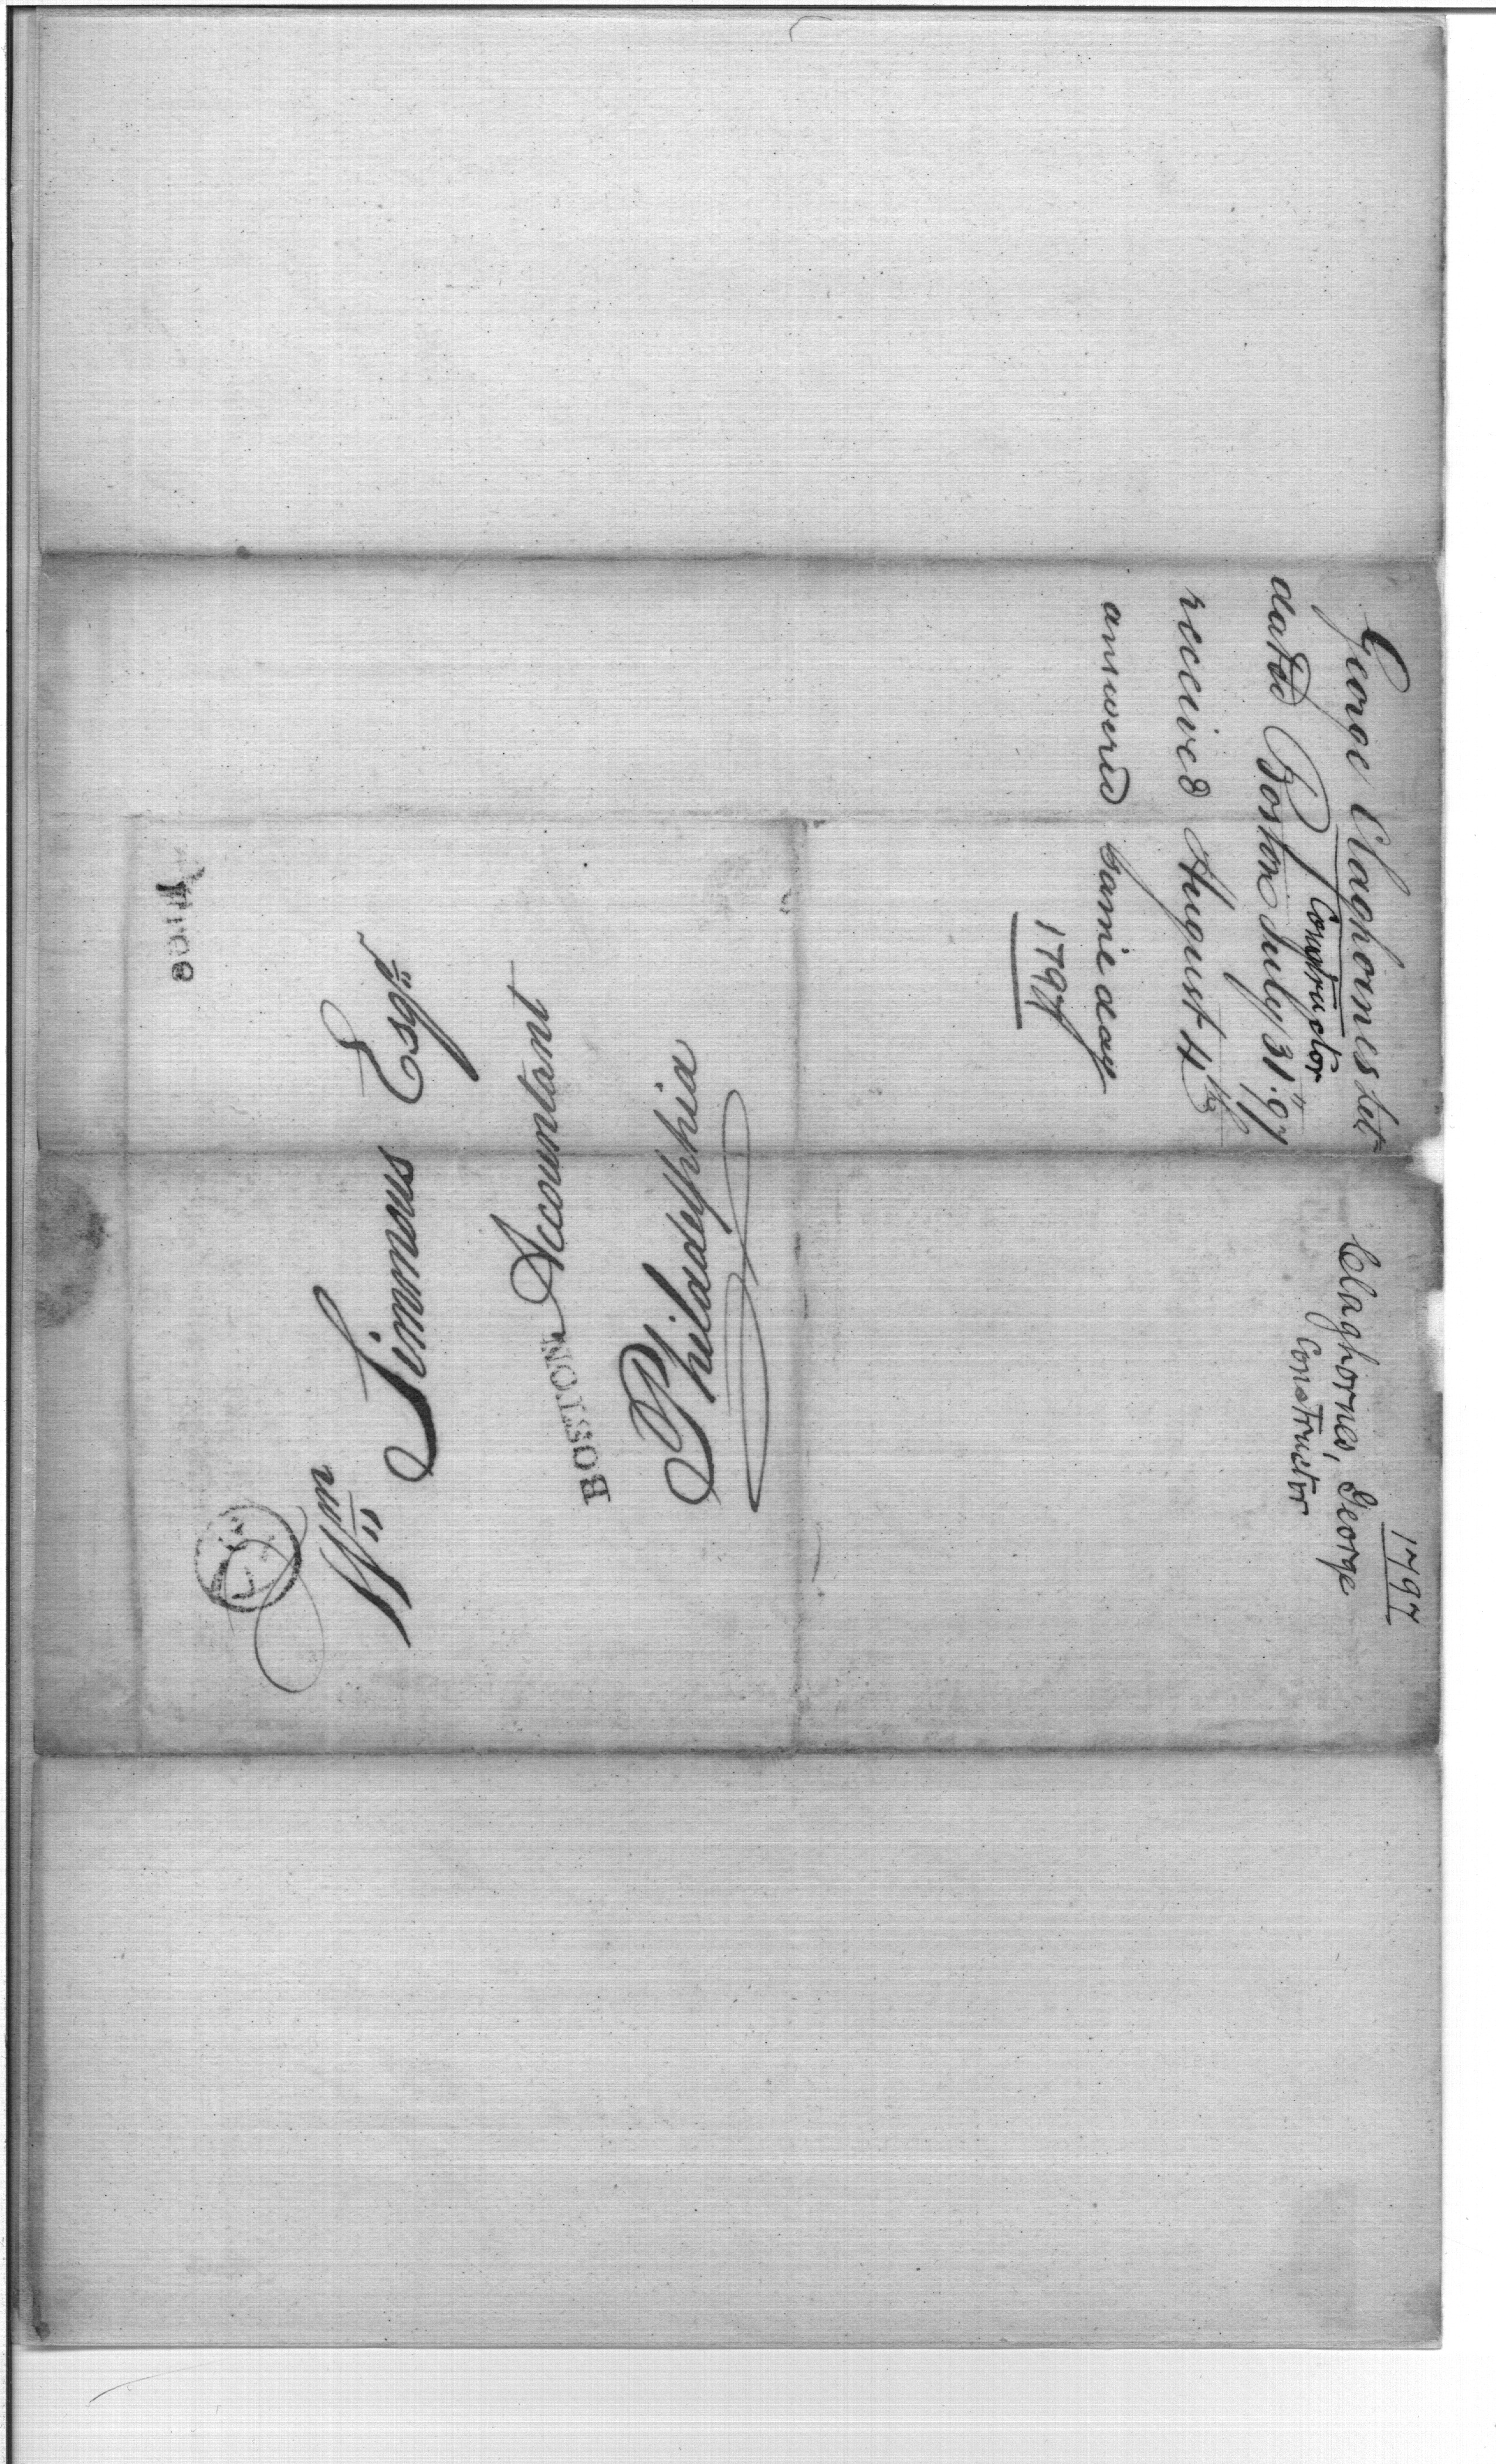 George Claghornes Let
Constructor
dated Boston July 31." 97
received August 4th
answered same day
1797
1797
Claghornes, George
Constructor
Wm Simmons Esqr
Accountant
BOSTON
Philadelphia